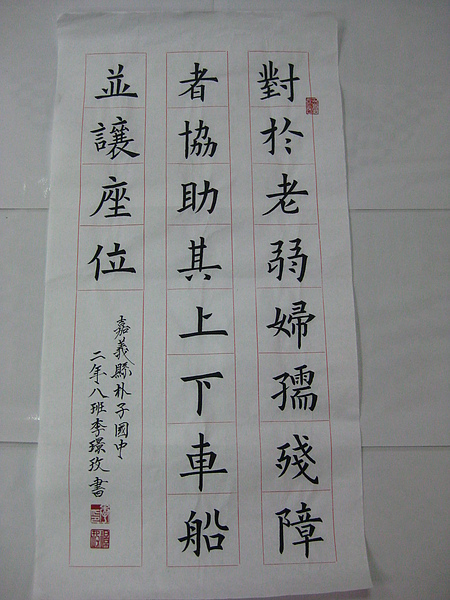 對於老弱婦孺殘障
者協助其上下車船
並讓座位
嘉義縣朴子國中
二年八班李璟玫書